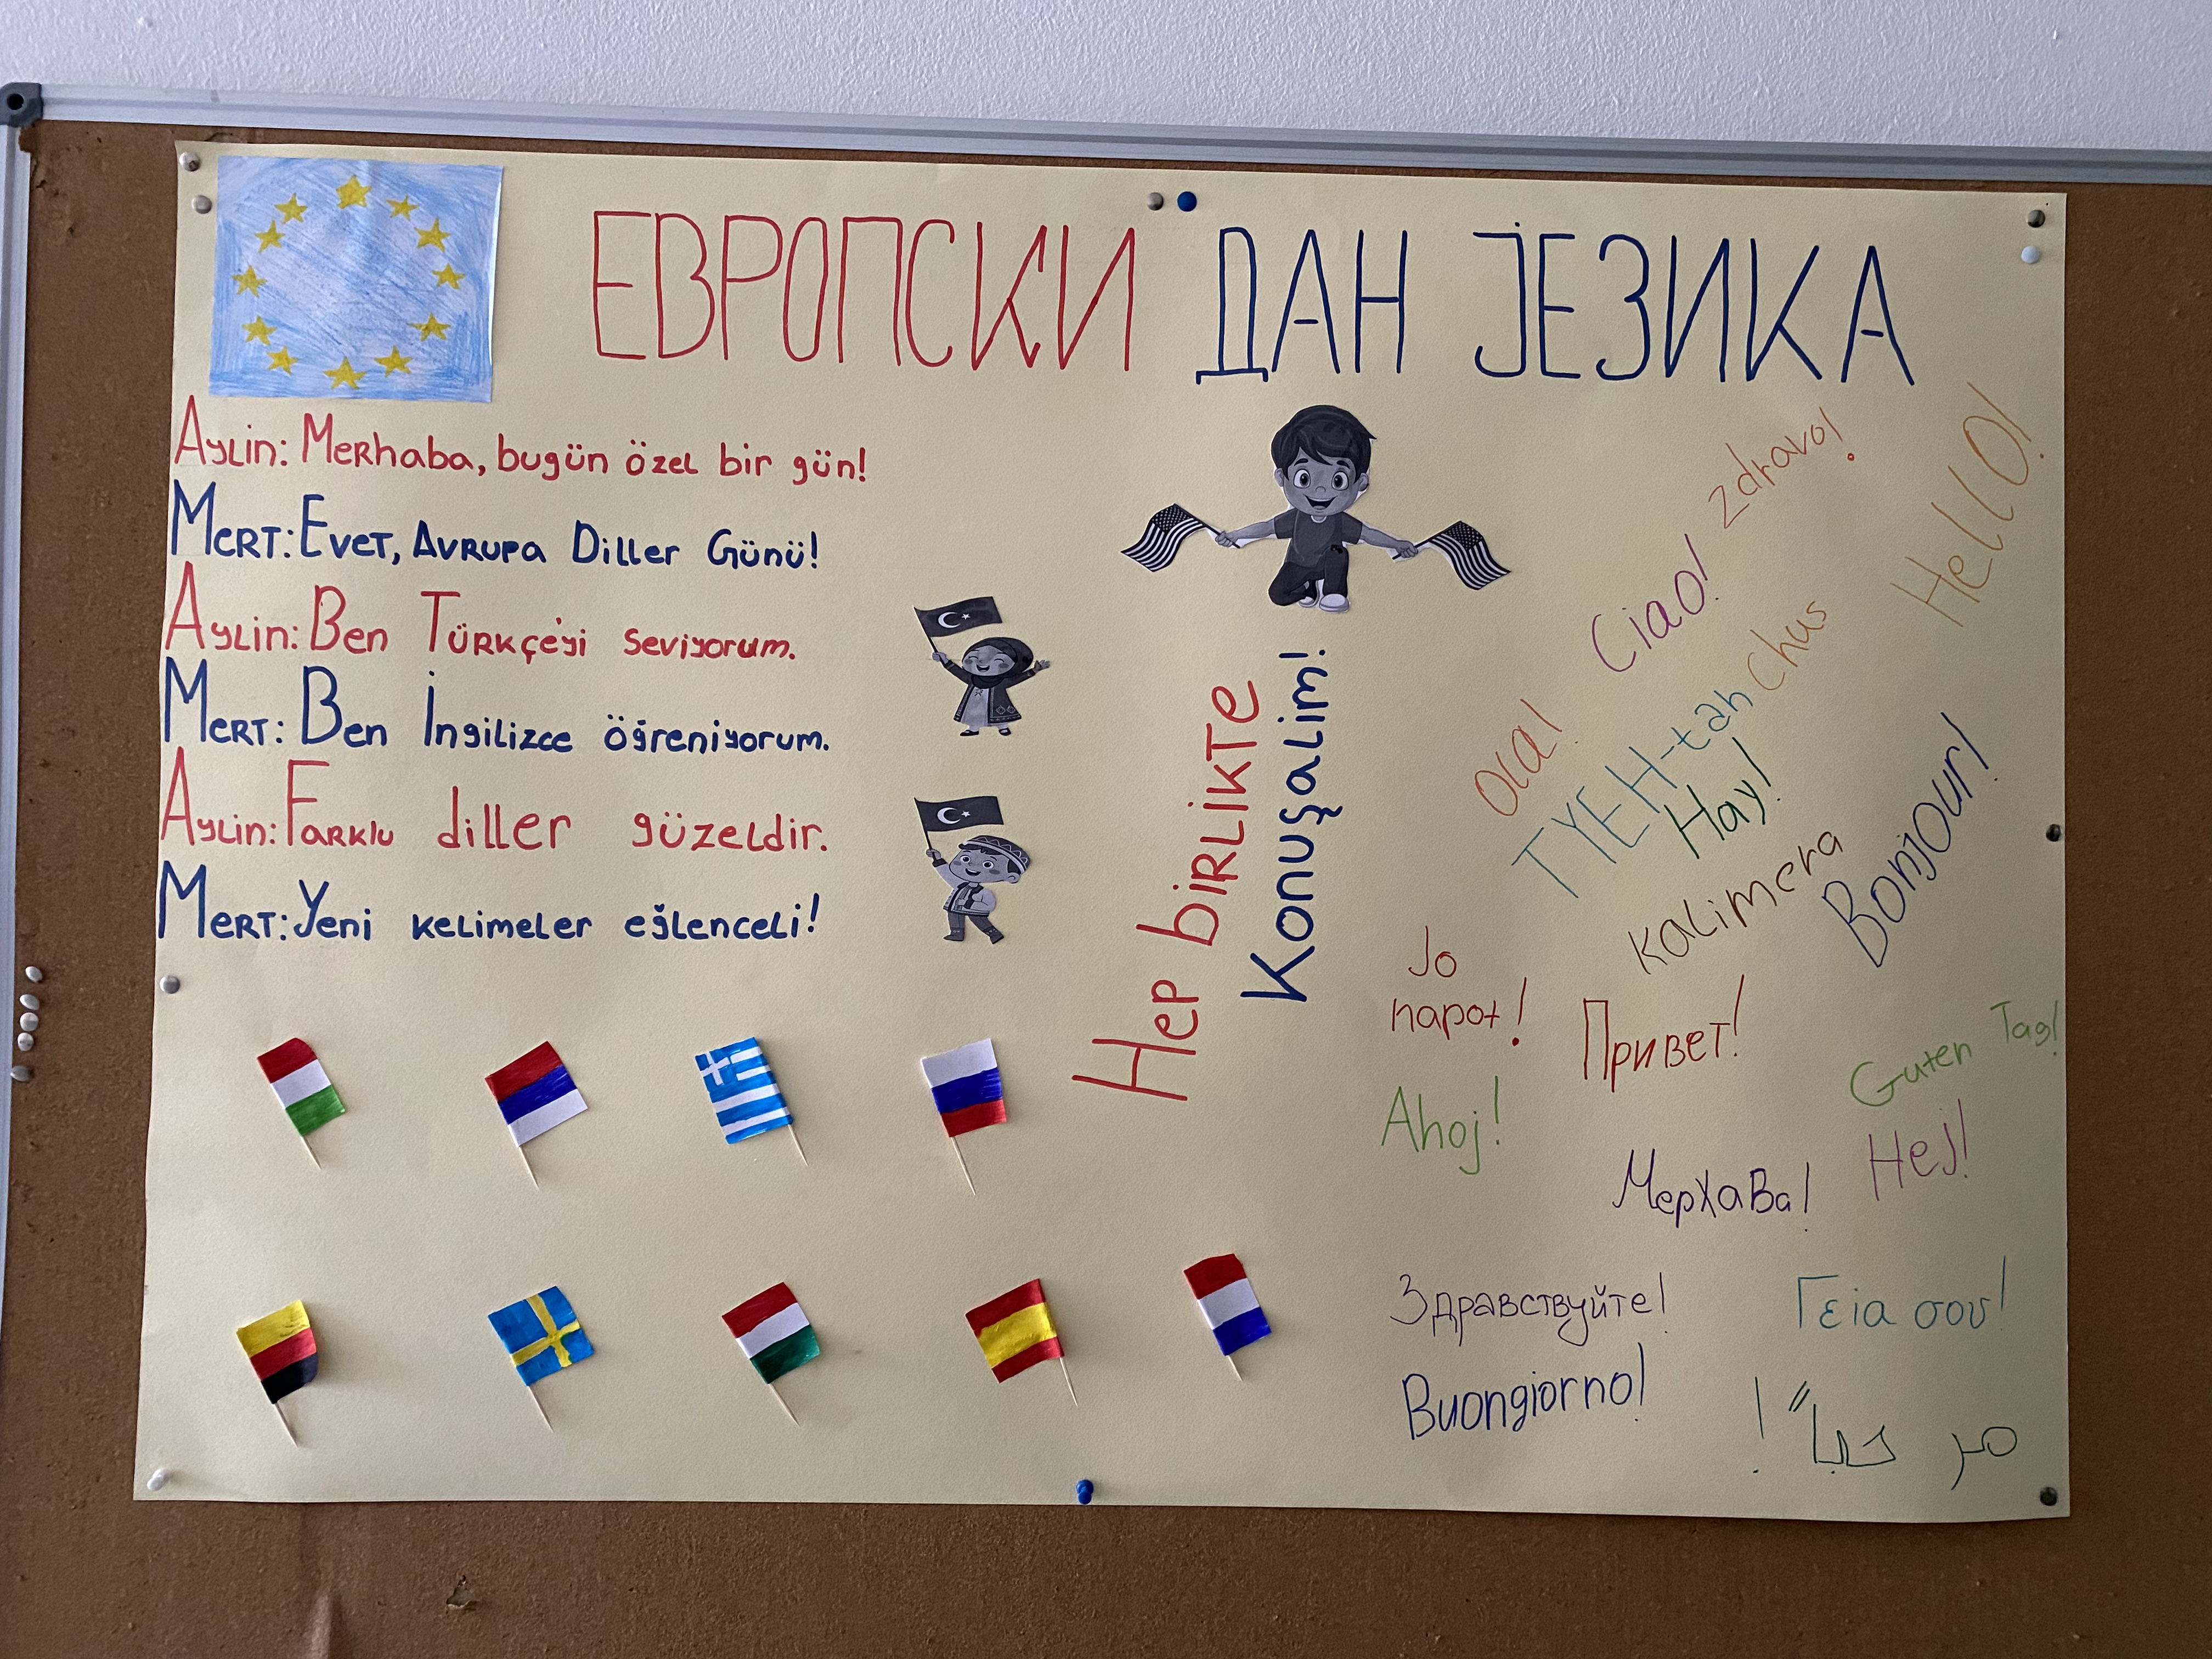 ЕВРОПСКИ ДАН ЈЕЗИКА
Aylin: Merhaba, bugün özel bir gün!
Mert: Evet, Avrupa Diller Günü!
Aylin: Ben Türkçe'yi seviyorum.
Mert: Ben İngilizce öğreniyorum.
Aylin: Farklu diller güzeldir.
Mert: Yeni kelimeler eğlenceli!
Hep birlikte
Konuşalim!
zdravo!
Hello!
Ciao!
chus
Ola!
TYEH-tah
Hay!
Bonjour!
kalimera
Jo
napot!
Привет!
Guten Tag!
Ahoj!
Hej!
МерХаВа!
Здравствуйте!
Γεια σου!
Buongiorno!
مر حباً!